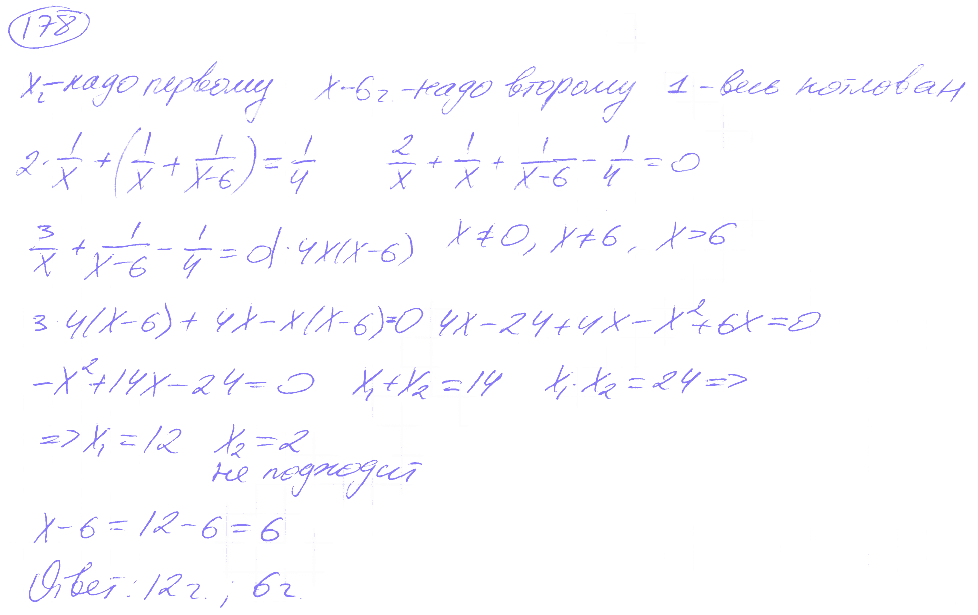 178
x ч - надо первому x-6 ч. - надо второму 1 - весь котлован
2·1/x + (1/x + 1/(x-6)) = 1/4 2/x + 1/x + 1/(x-6) - 1/4 = 0
3/x + 1/(x-6) - 1/4 = 0 |·4x(x-6) x≠0, x≠6, x>6
3·4(x-6) + 4x - x(x-6)=0 4x-24+4x-x²+6x=0
-x²+14x-24=0 x₁+x₂=14 x₁·x₂=24 =>
=> x₁=12 x₂=2
не подходит
x-6=12-6=6
Ответ: 12ч.; 6ч.